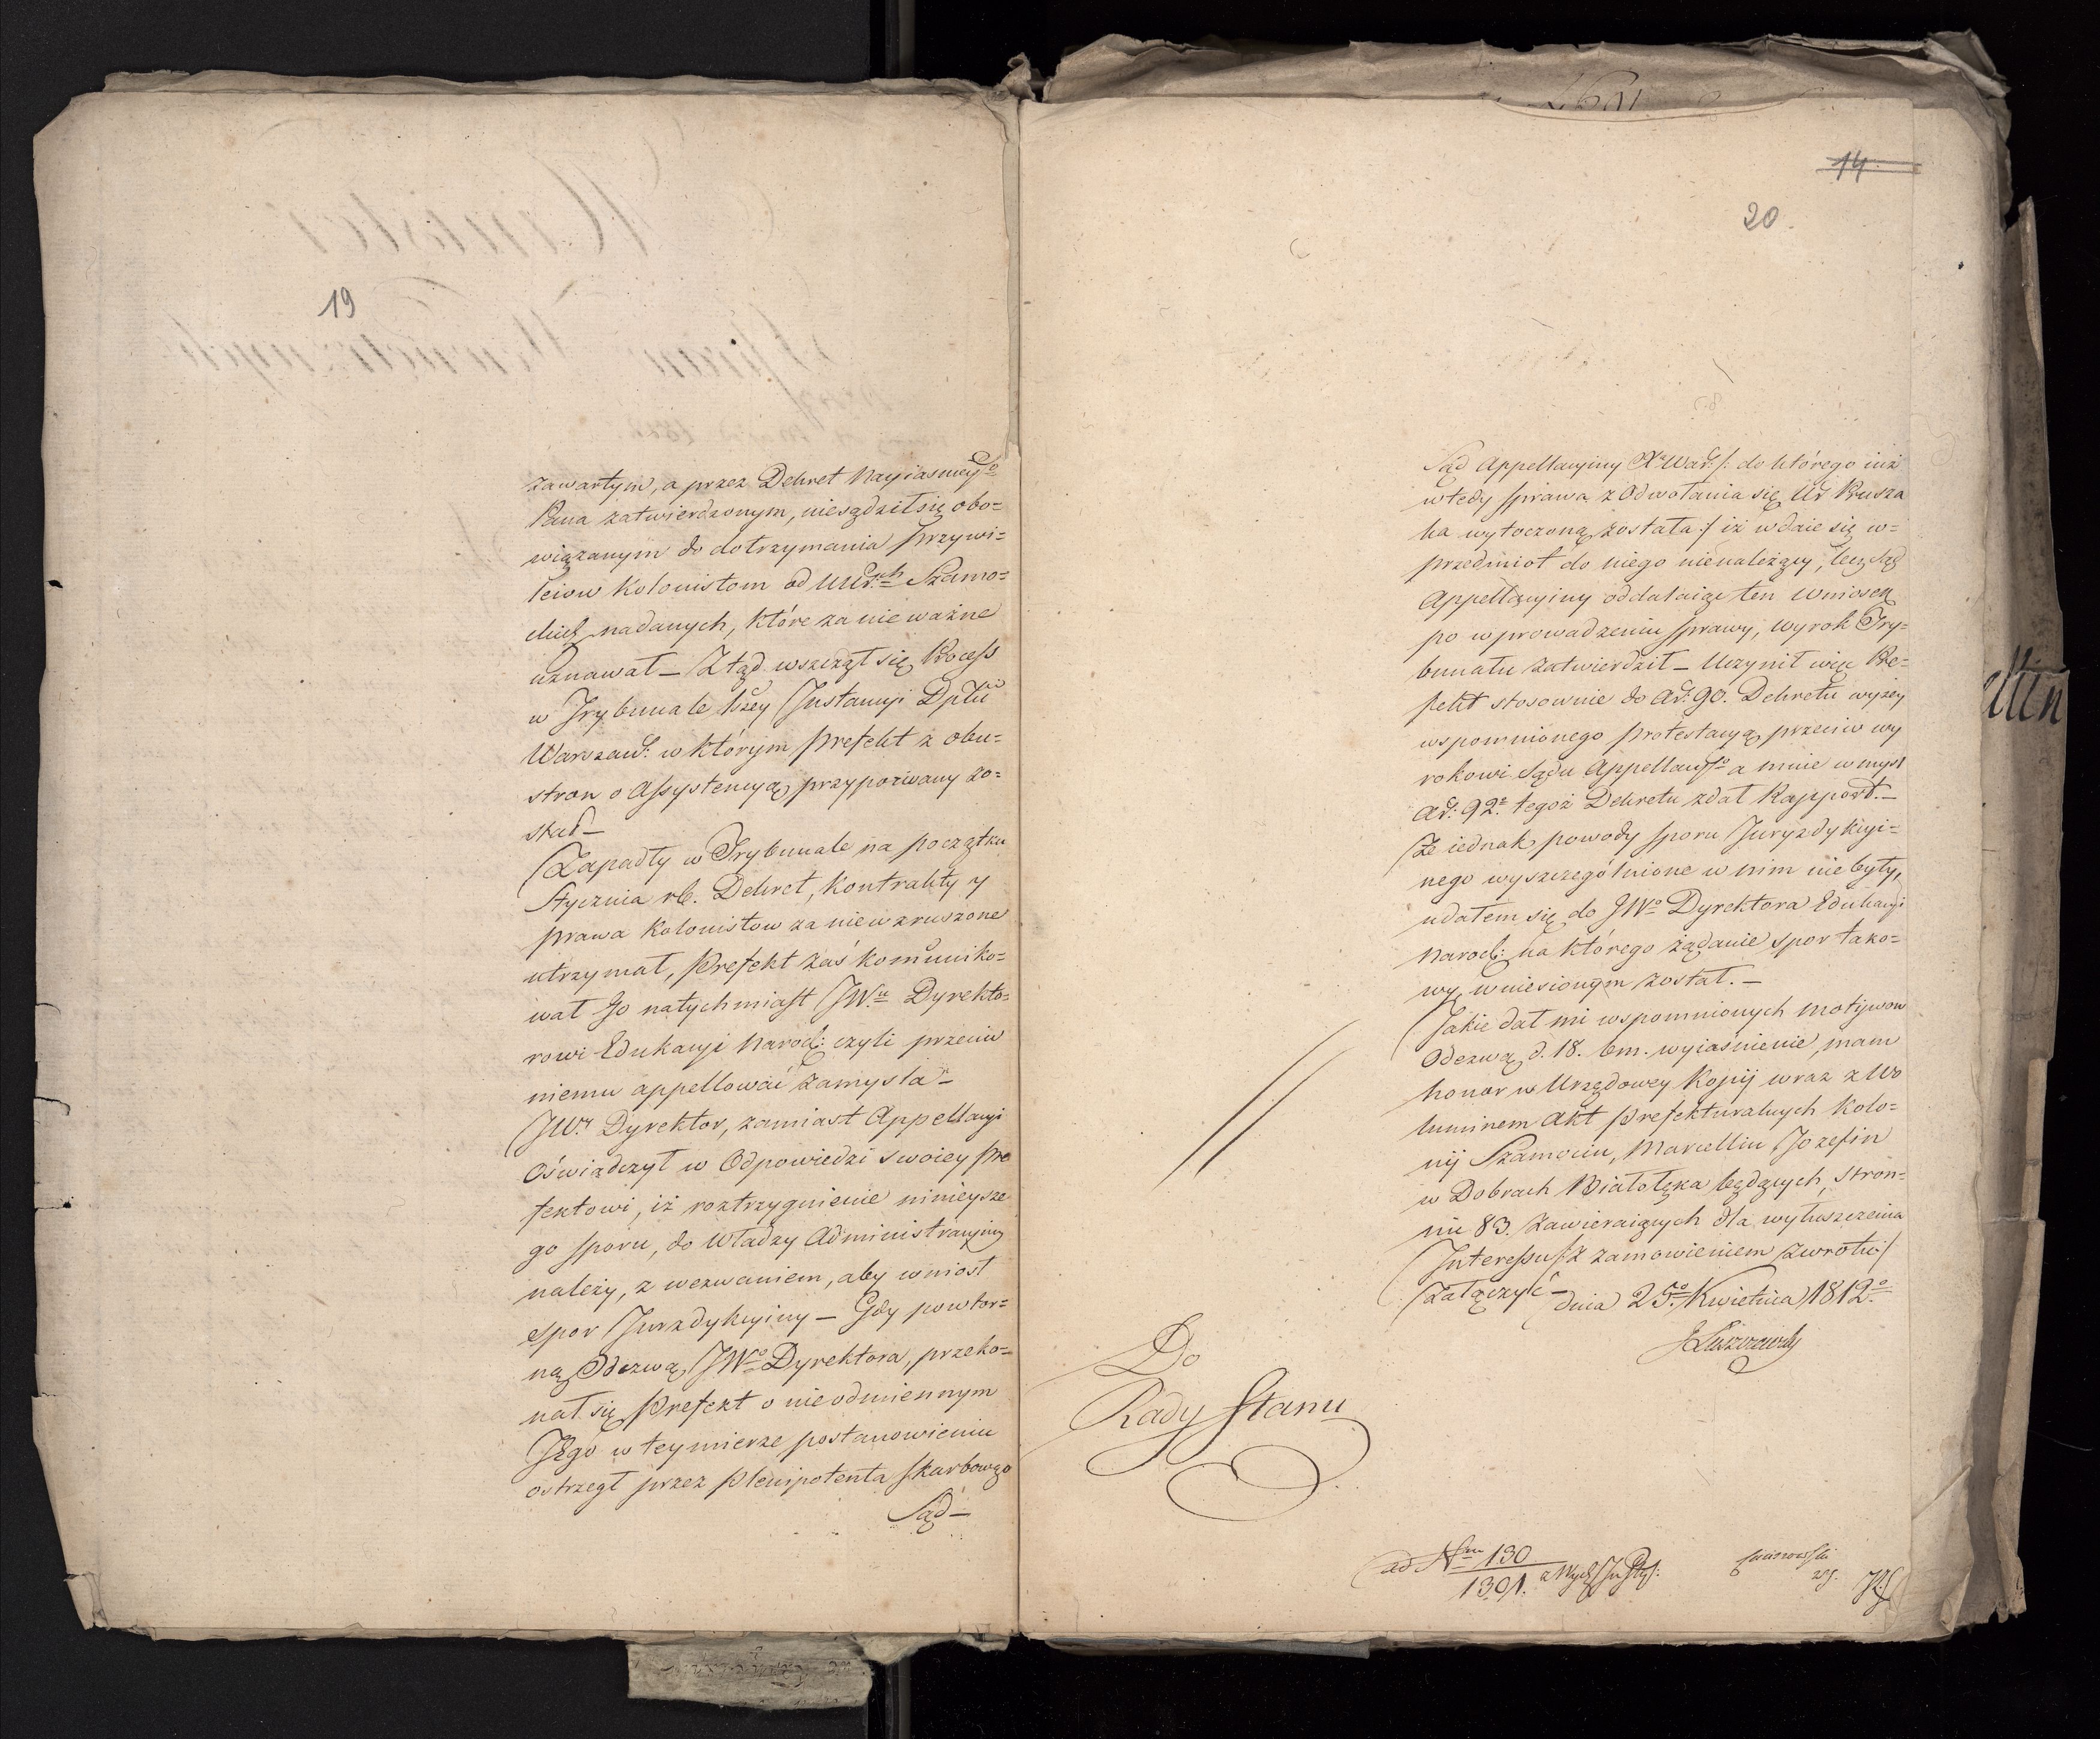 19
zawartym, a przez Dekret Nayiasnieyo
Pana zatwierdzonym, niesądził się obo=
wiązanym do dotrzymania przywi=
leiow Kolonistom od UUr:ch Szamo=
ckich nadanych, które za nie ważne
uznawał_ Ztąd wszczął się Process
w Trybunale 1szey Instancyi Dpttu
Warszaw: w którym Prefekt z obu=
stron o Assystencyą przypozwany zo=
stał_
Zapadły w Trybunale na początku
Stycznia rb. Dekret, Kontrakty y
prawa Kolonistow za niewzruszone
utrzymał, Prefekt zaś kommuniko=
wał Go natychmiast JWu Dyrekto=
rowi Edukacyi Narod: czyli przeciw
niemu appellować zamysla_
JW.r Dyrektor, zamiast Appellacyi
Oświadczył w Odpowiedzi swoiey Pre
fektowi, iż roztrzygnienie ninieysze
go sporu, do Władzy Administracyiney
należy, z wezwaniem, aby wniosł
spor Jurzdykcyiny_ Gdy powtor=
ną Odezwą JWo Dyrektora, przeko=
nał się Prefekt o nieodmiennym
JEgo w tey mierze postanowieniu
ostrzegł przez Plenipotenta skarbowego
Sąd_
14
20
Sąd Appellacyiny Xa War: /: do którego iuż
wtedy sprawa z Odwołania się Ur Prusza
ka wytoczoną została :/ iż wdaie się w=
przedmiot do niego nienależący, lecz Sąd
Appellacyiny oddalaiąc ten wniosek
po wprowadzeniu sprawy, wyrok Try=
bunału zatwierdził_ Uczynił więc Pre=
fekt stosownie do Ar: 90. Dekretu wyżey
wspomnionego Protestacyą przeciw wy
rokowi Sądu Appellacygo a mnie w mysl
Ar: 92o tegoż Dekretu zdał Rapport._
Że iednak powody sporu Juryzdykcyi=
nego wyszczególnione w nim nie były,
udałem się do JWo Dyrektora Edukacyi
Narod: na którego żądanie spor tako=
wy wniesionym został._
Jakie dał mi wspomnionych motywow
Odezwą d. 18. bm. wyiaśnienie, mam
honor w Urzędowey Kopij wraz z Wo
luminem Akt Prefekturalnych Kolo=
nij Szamocin, Marcellin Jozefin
w Dobrach Białołęka będących, stron=
nic 83. zawieraiących dla wyłuszczenia
Interessu /: z zamowieniem zwrotu :/
załączyć_
dnia 25o Kwietnia 1812o
Łuszczewski
Do
Rady Stanu
ad Nrm 130
1301. z Wydz: Justy: